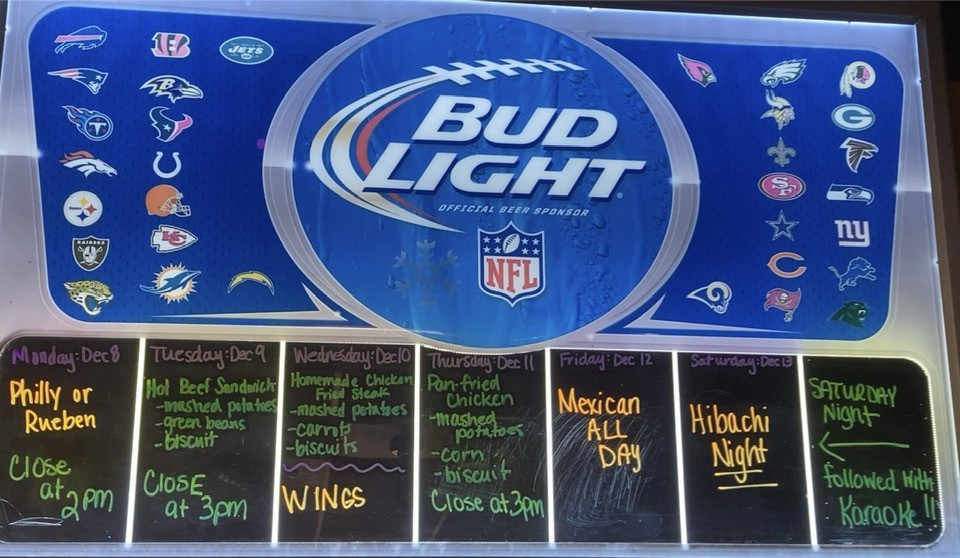 JETS
Steelers
RAIDERS
KC
SF
ny
G
C
BUD
LIGHT
OFFICIAL BEER SPONSOR
NFL
Monday: Dec 8
Philly or
Rueben
Close
at
2pm
Tuesday: Dec 9
Hot Beef Sandwich
-mashed potatoes
-green beans
-biscuit
Close
at 3pm
Wednesday: Dec 10
Homemade Chicken
Fried Steak
-mashed potatoes
-carrots
-biscuits
WINGS
Thursday: Dec 11
Pan-fried
Chicken
-mashed
potatoes
-corn
-biscuit
Close at 3pm
Friday: Dec 12
Mexican
ALL
DAY
Saturday: Dec 13
Hibachi
Night
SATURDAY
Night
followed with
Karaoke!!